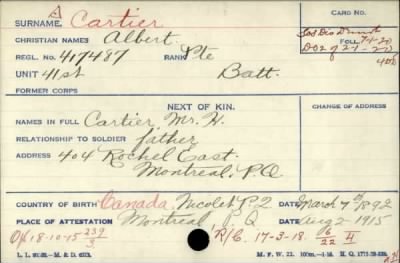 A
SURNAME. Cartier
CARD NO.
CHRISTIAN NAMES Albert
REGL. NO. 417487 RANK Pte
FOLL.
UNIT 41st Batt.
FORMER CORPS
NEXT OF KIN.
CHANGE OF ADDRESS
NAMES IN FULL Cartier Mr. H.
RELATIONSHIP TO SOLDIER father
ADDRESS 404 Rochel East.
Montreal, P.Q
COUNTRY OF BIRTH Canada, Nicolet P.Q DATE March 7th 1892
PLACE OF ATTESTATION Montreal, P.Q DATE Aug 2 1915
18-10-15 239/3 R/C. 17-3-18. 6/22
M. F. W. 22.